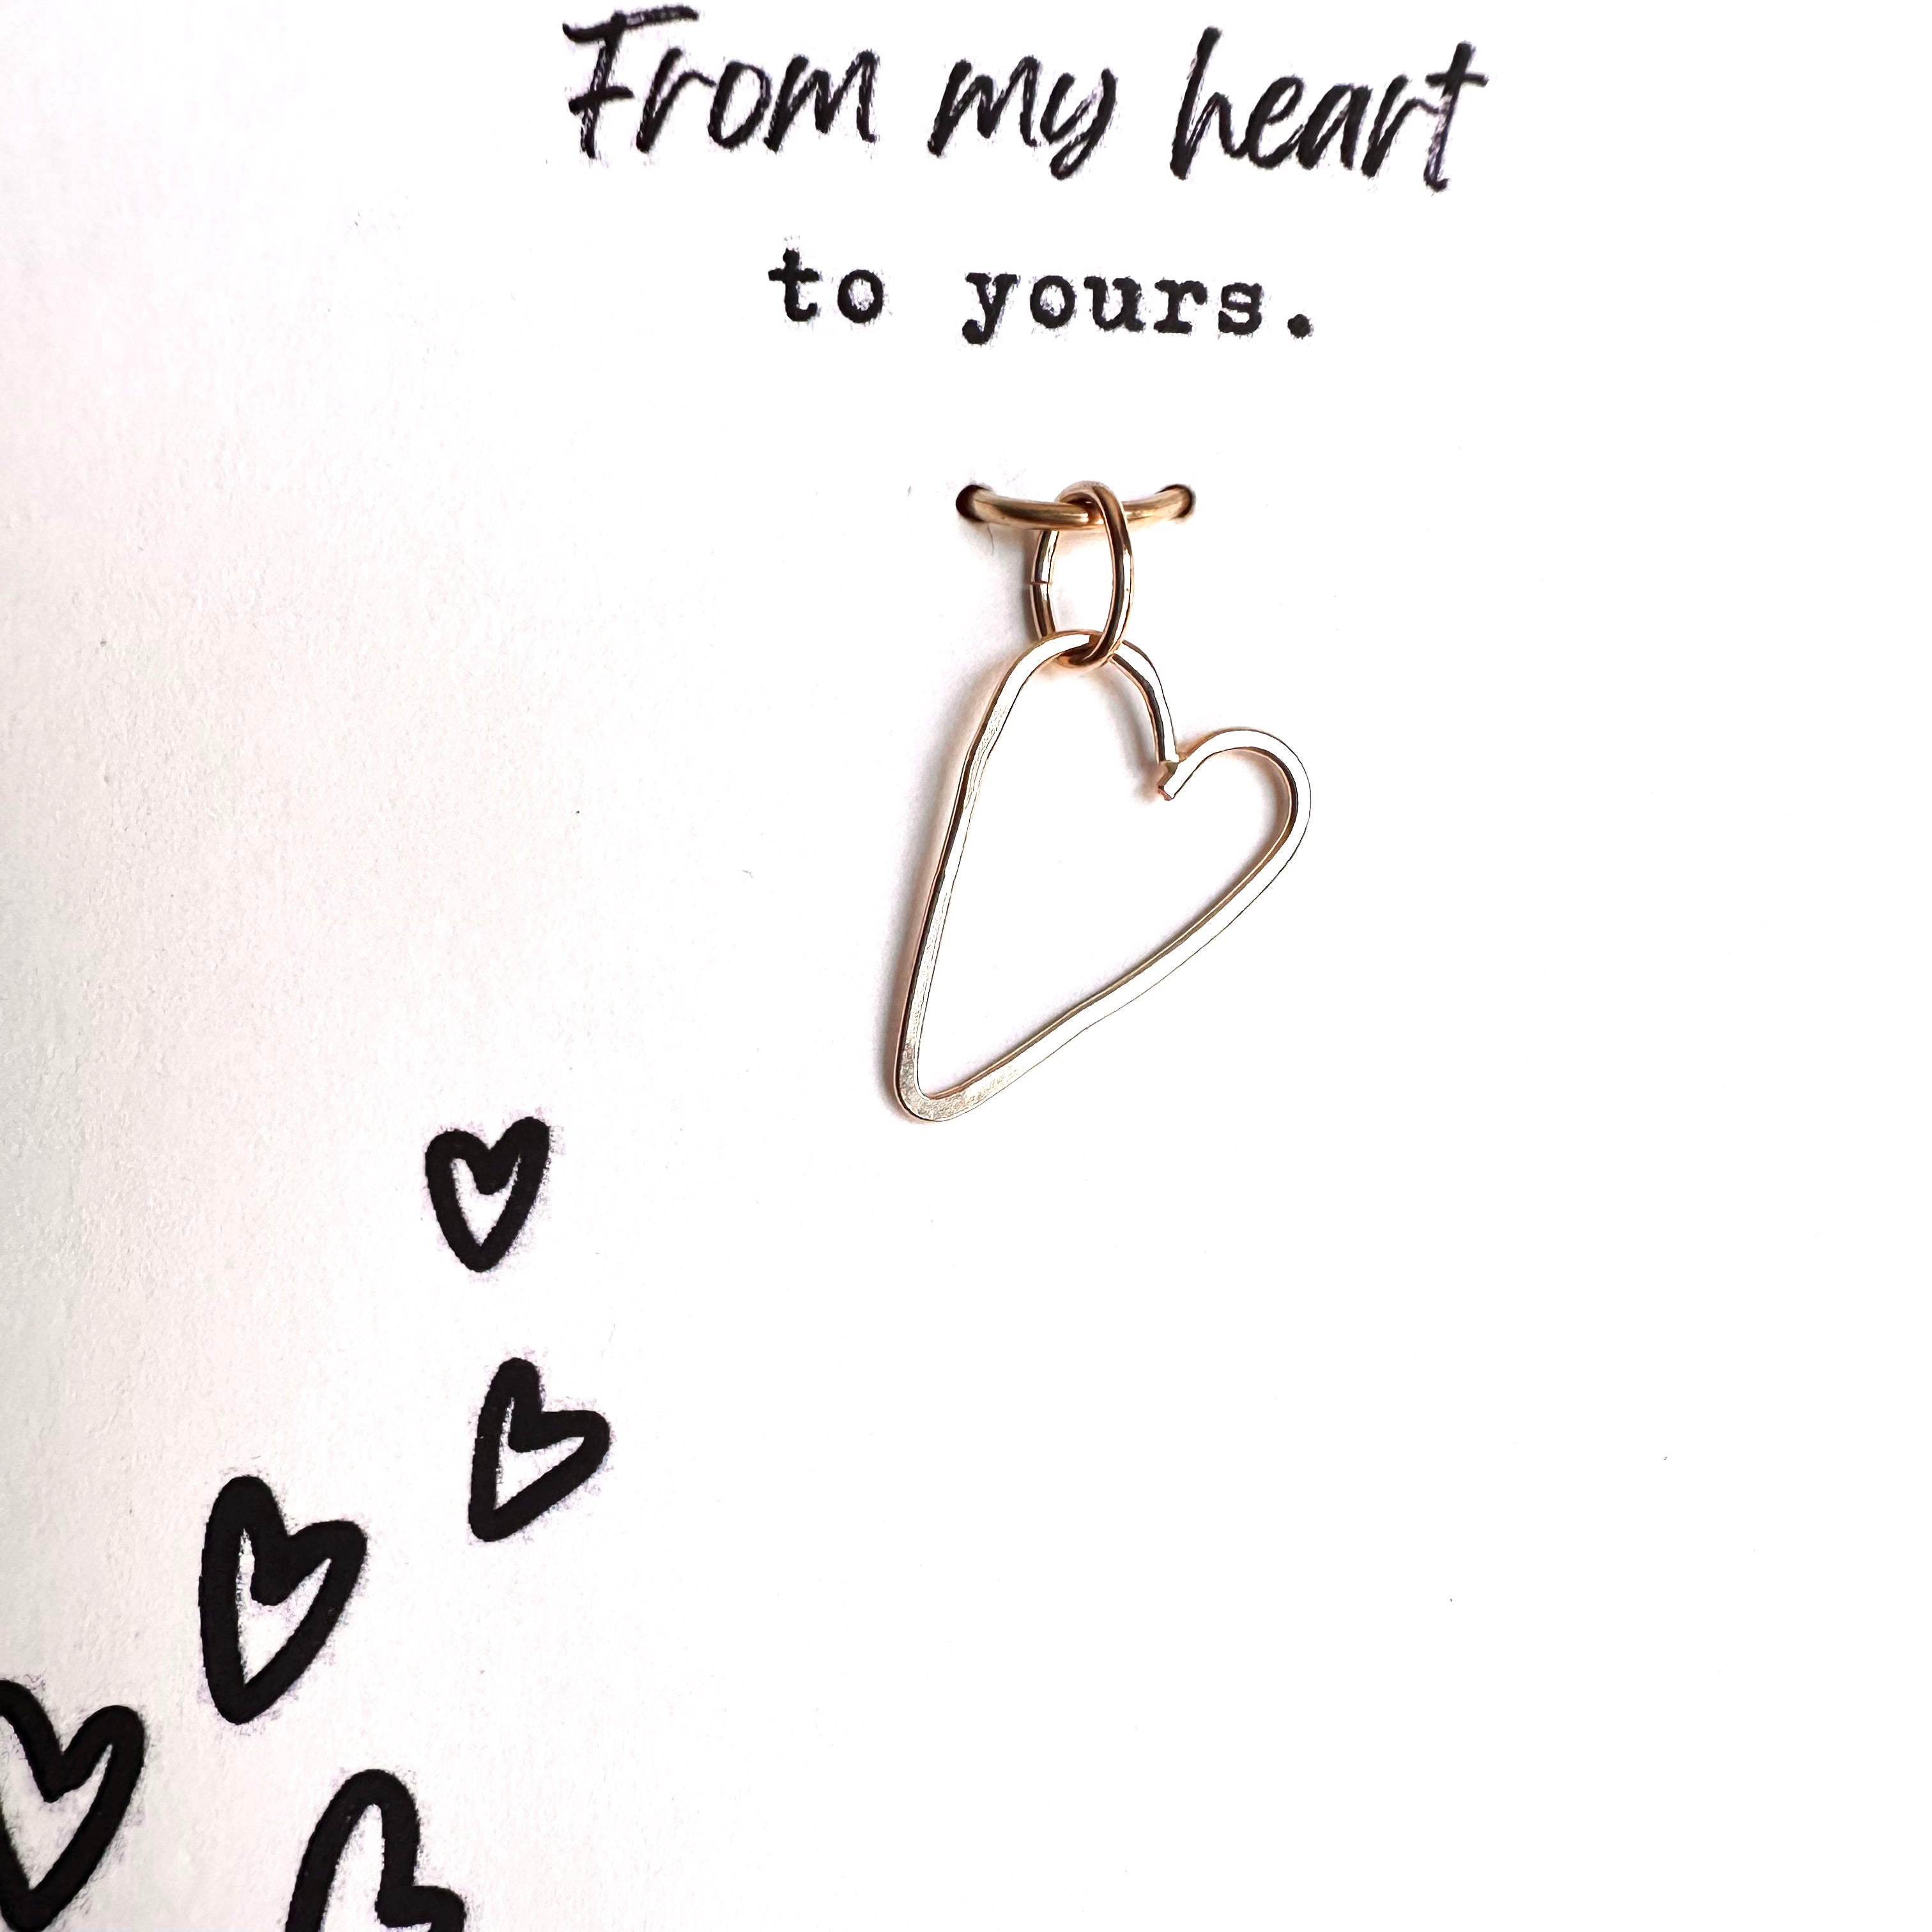 From my heart
to yours.